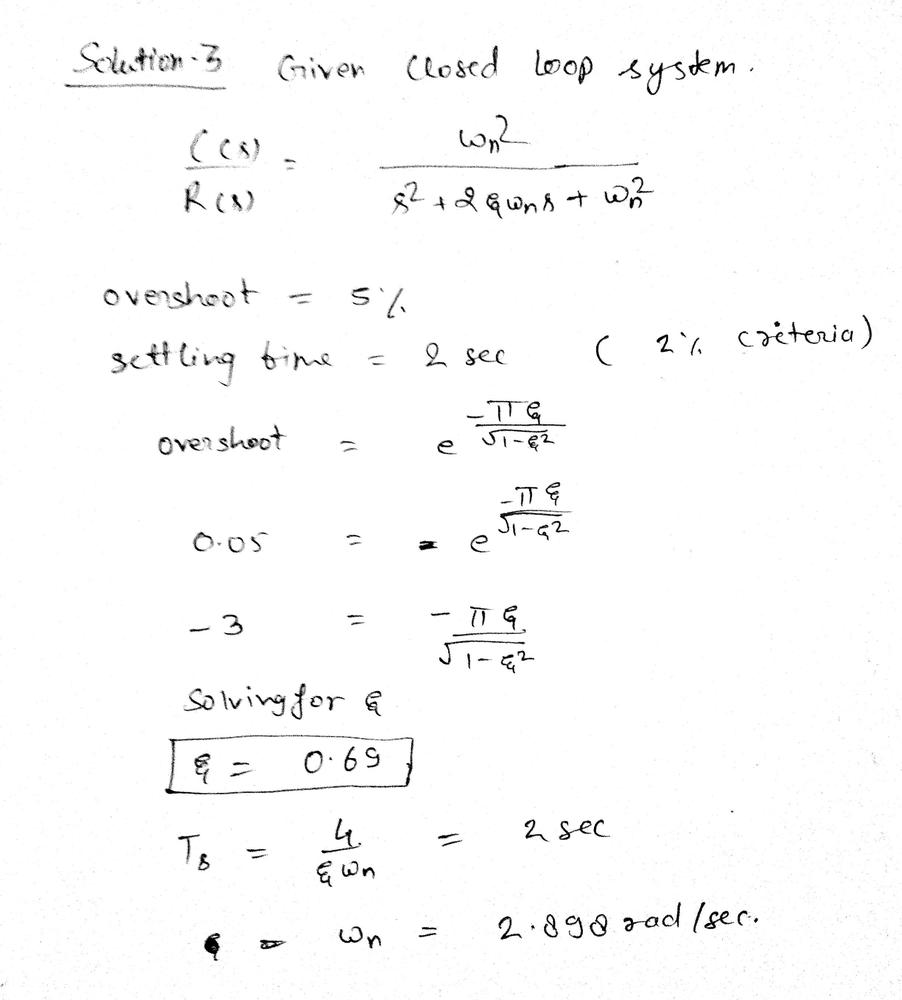 Solution-3 Given Closed loop system.
C(s)/R(s) = ωn²/(s² + 2ξωns + ωn²)
overshoot = 5%
settling time = 2 sec ( 2% creteria)
overshoot = e^(-πξ/√(1-ξ²))
0.05 = e^(-πξ/√(1-ξ²))
-3 = -πξ/√(1-ξ²)
Solving for ξ
ξ = 0.69
Ts = 4/(ξωn) = 2 sec
ωn = 2.898 rad/sec.